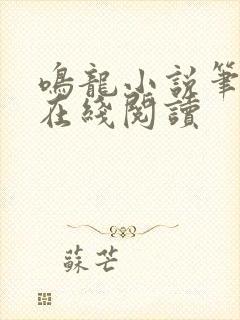 鳴龍小說筆
在綫閱讀
蘇芒